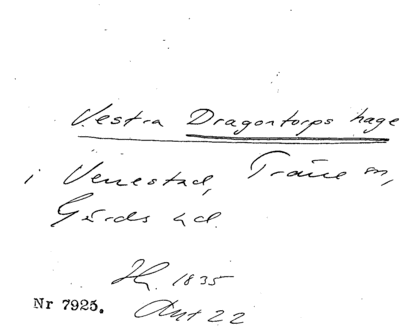 Vestra Dragontorps hage
i Venestad, Träne sn,
Gärds hd.
Hr. 1835
Nr 7925. Akt 22